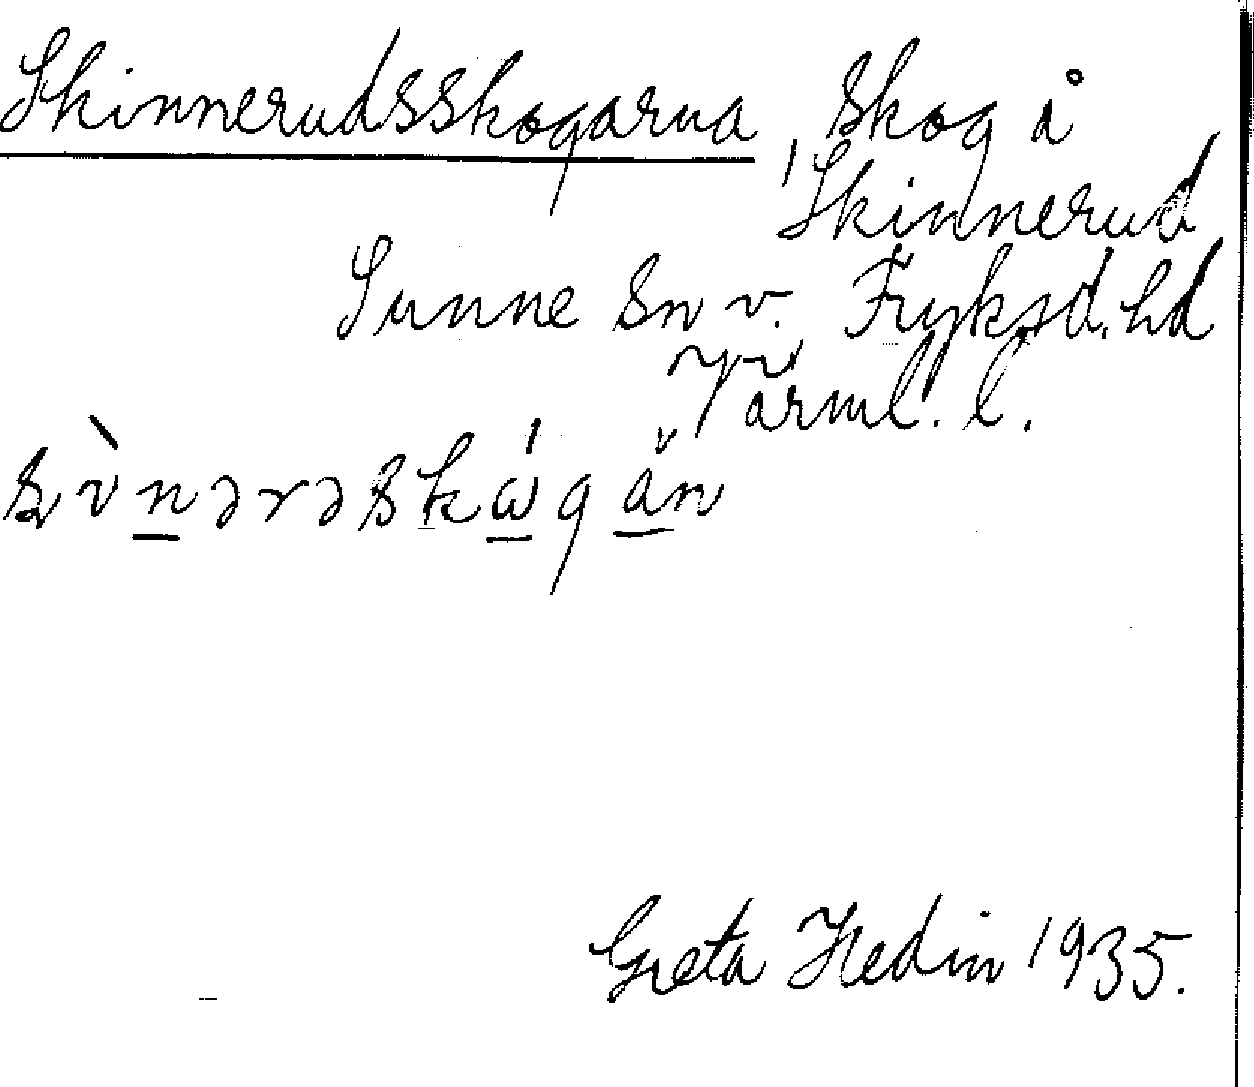 Skinnerudsskogarna, Skog å
Skinnerud
Sunne sn v. Fryksd. hd
Värml. l.
Greta Hedin 1935.